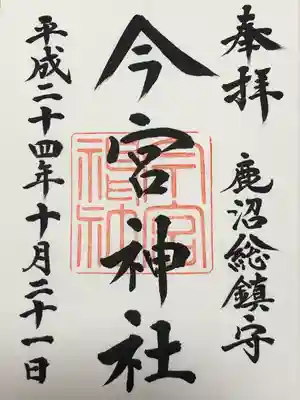 奉拝
鹿沼総鎮守
今宮神社
平成二十四年十月二十一日